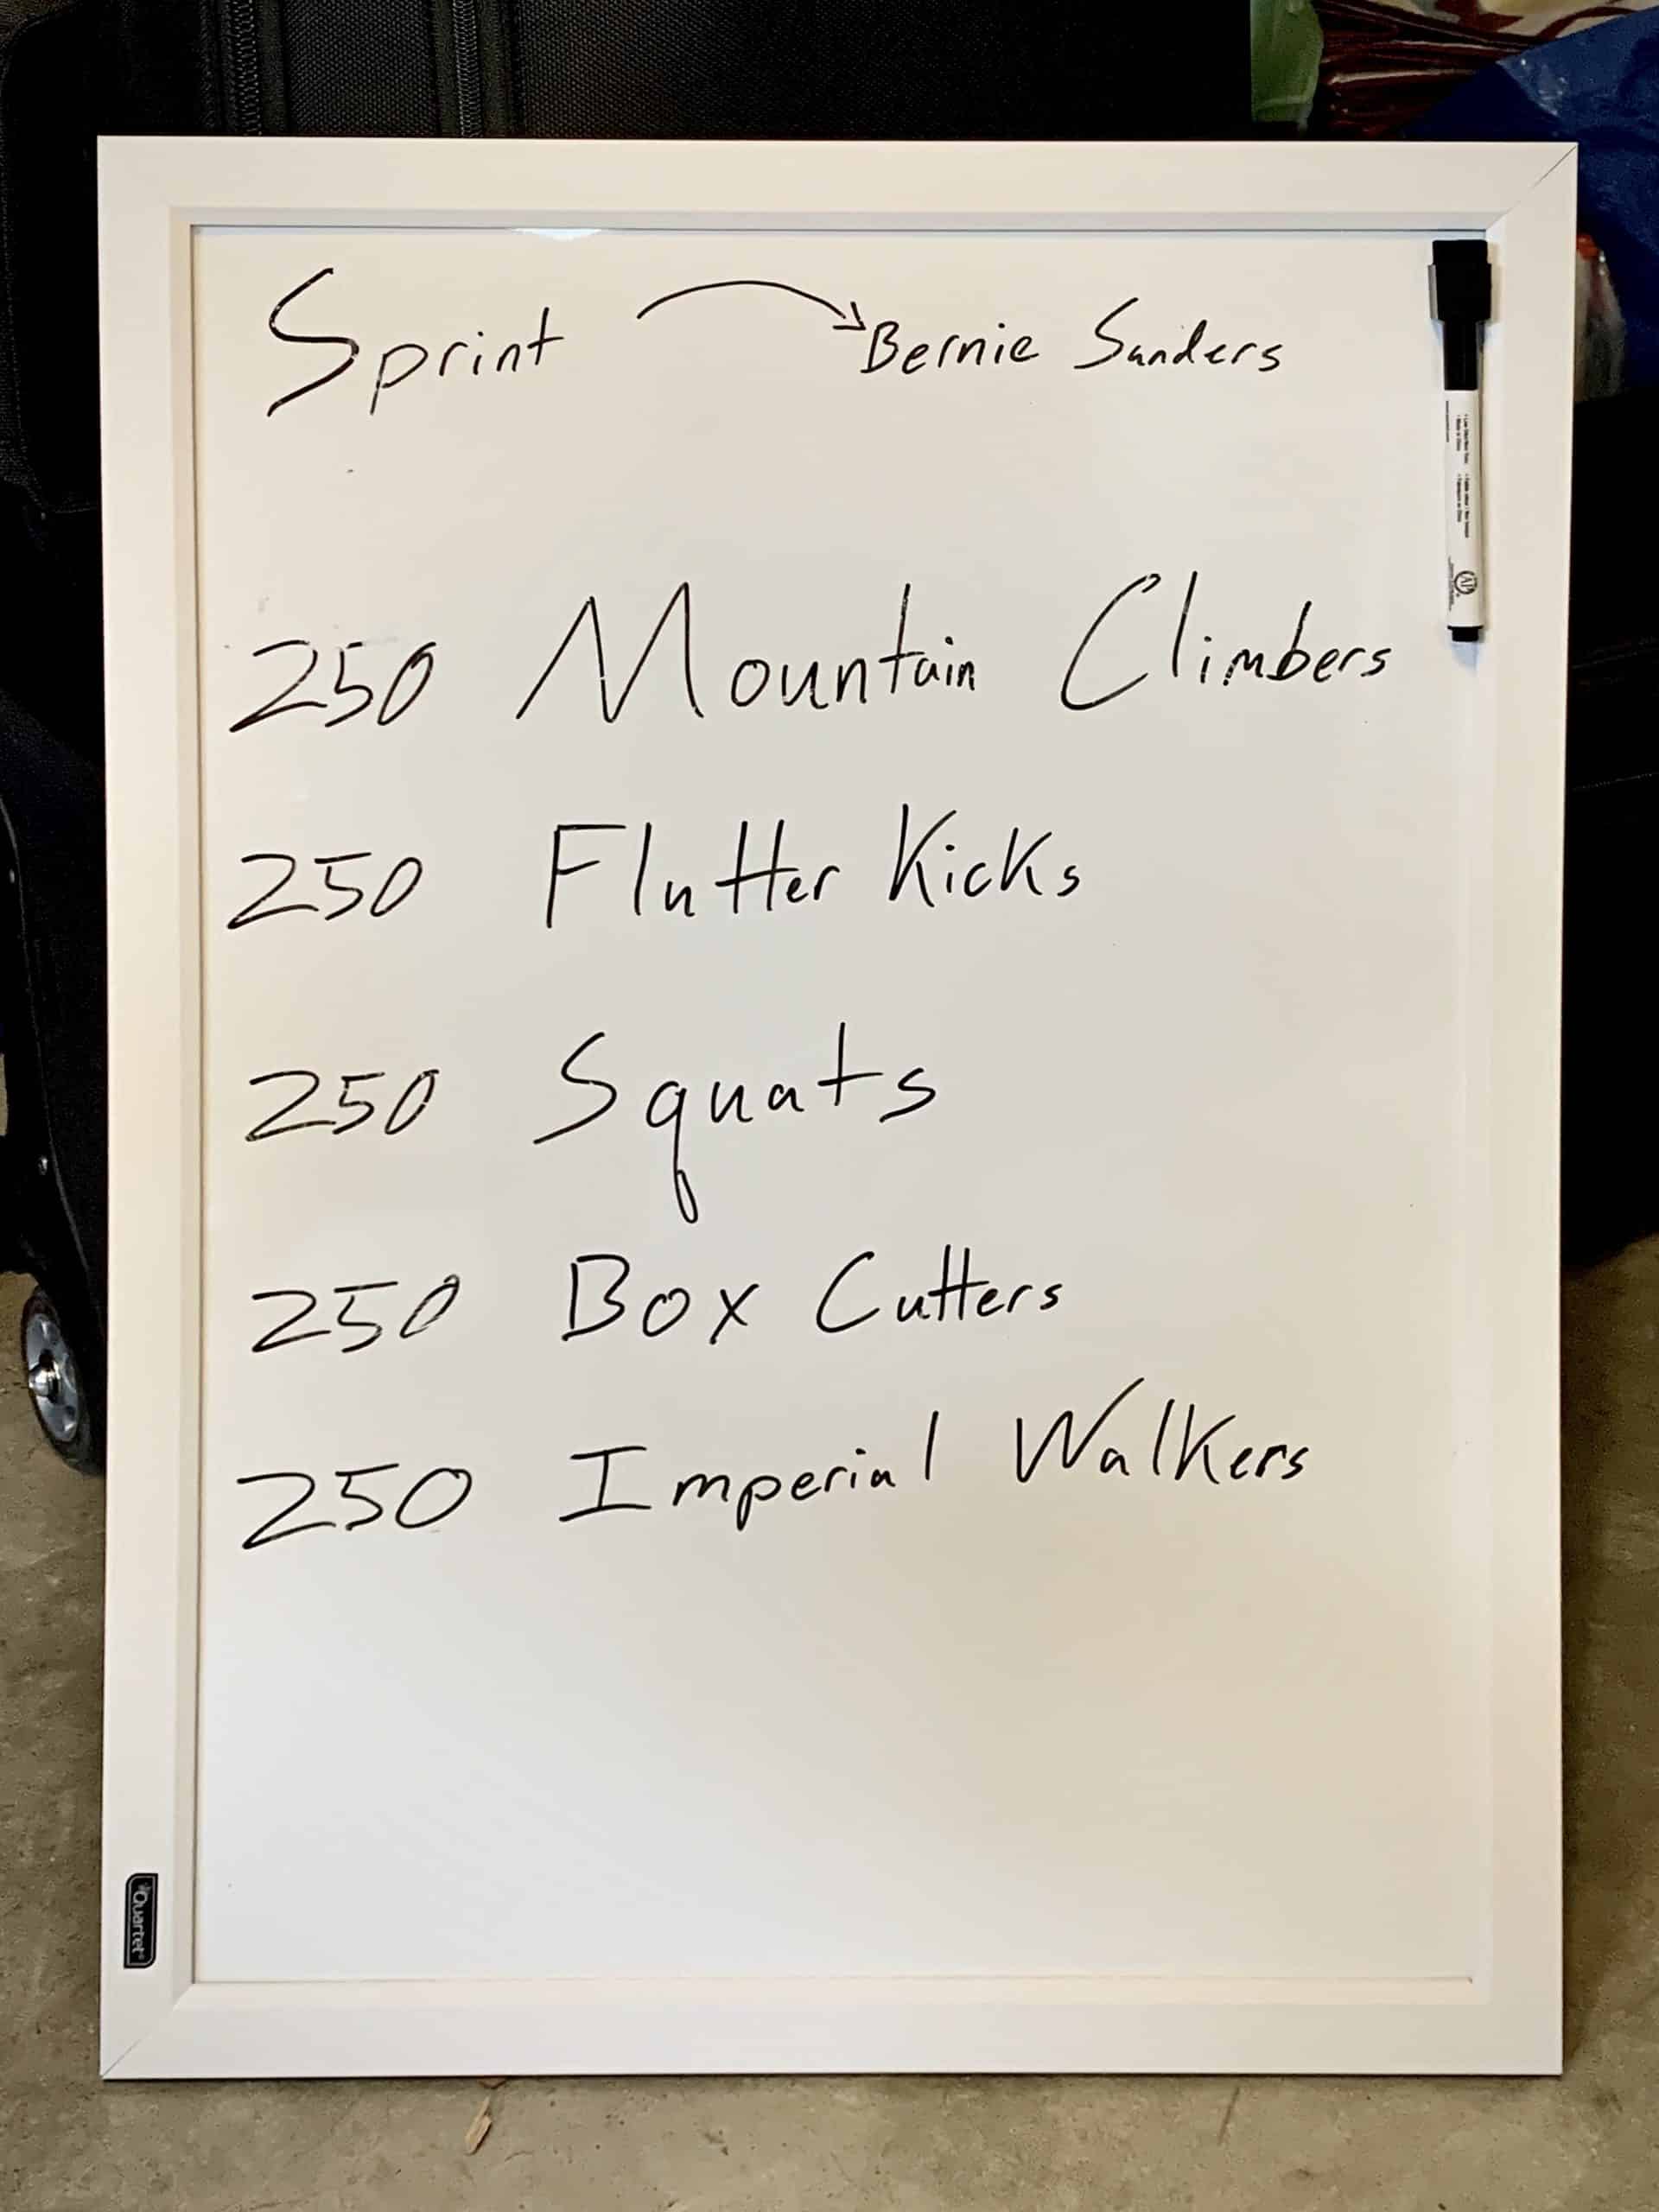 Sprint → Bernie Sanders
250 Mountain Climbers
250 Flutter Kicks
250 Squats
250 Box Cutters
250 Imperial Walkers
Quartet